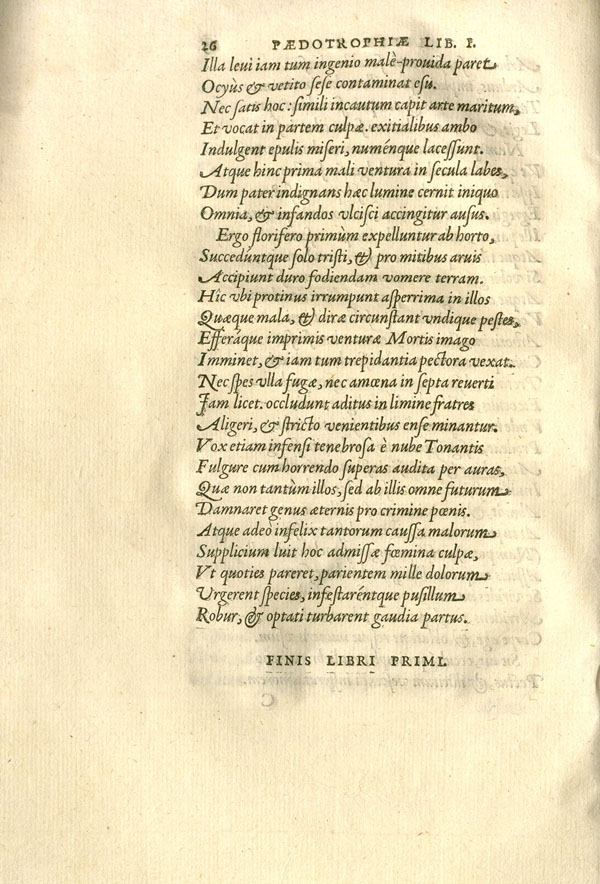 26 PÆDOTROPHIÆ LIB. I.
Illa leui iam tum ingenio malè-prouida paret
Ocyùs & vetito sese contaminat esu.
Nec satis hoc: simili incautum capit arte maritum,
Et vocat in partem culpæ. exitialibus ambo
Indulgent epulis miseri, numénque lacessunt.
Atque hinc prima mali ventura in secula labes,
Dum pater indignans hæc lumine cernit iniquo
Omnia, & infandos vlcisci accingitur ausus.
Ergo florifero primùm expelluntur ab horto,
Succedúntque solo tristi, & pro mitibus aruis
Accipiunt duro fodiendam vomere terram.
Hic vbi protinus irrumpunt asperrima in illos
Quæque mala, & diræ circunstant vndique pestes,
Efferáque imprimis venturæ Mortis imago
Imminet, & iam tum trepidantia pectora vexat.
Nec spes vlla fugæ, nec amœna in septa reuerti
Iam licet. occludunt aditus in limine fratres
Aligeri, & stricto venientibus ense minantur.
Vox etiam infensi tenebrosa è nube Tonantis
Fulgure cum horrendo superas audita per auras,
Quæ non tantùm illos, sed ab illis omne futurum
Damnaret genus æternis pro crimine pœnis.
Atque adeò infelix tantorum caussa malorum
Supplicium luit hoc admissæ fœmina culpæ,
Vt quoties pareret, parientem mille dolorum
Vrgerent species, infestaréntque pusillum
Robur, & optati turbarent gaudia partus.
FINIS LIBRI PRIMI.